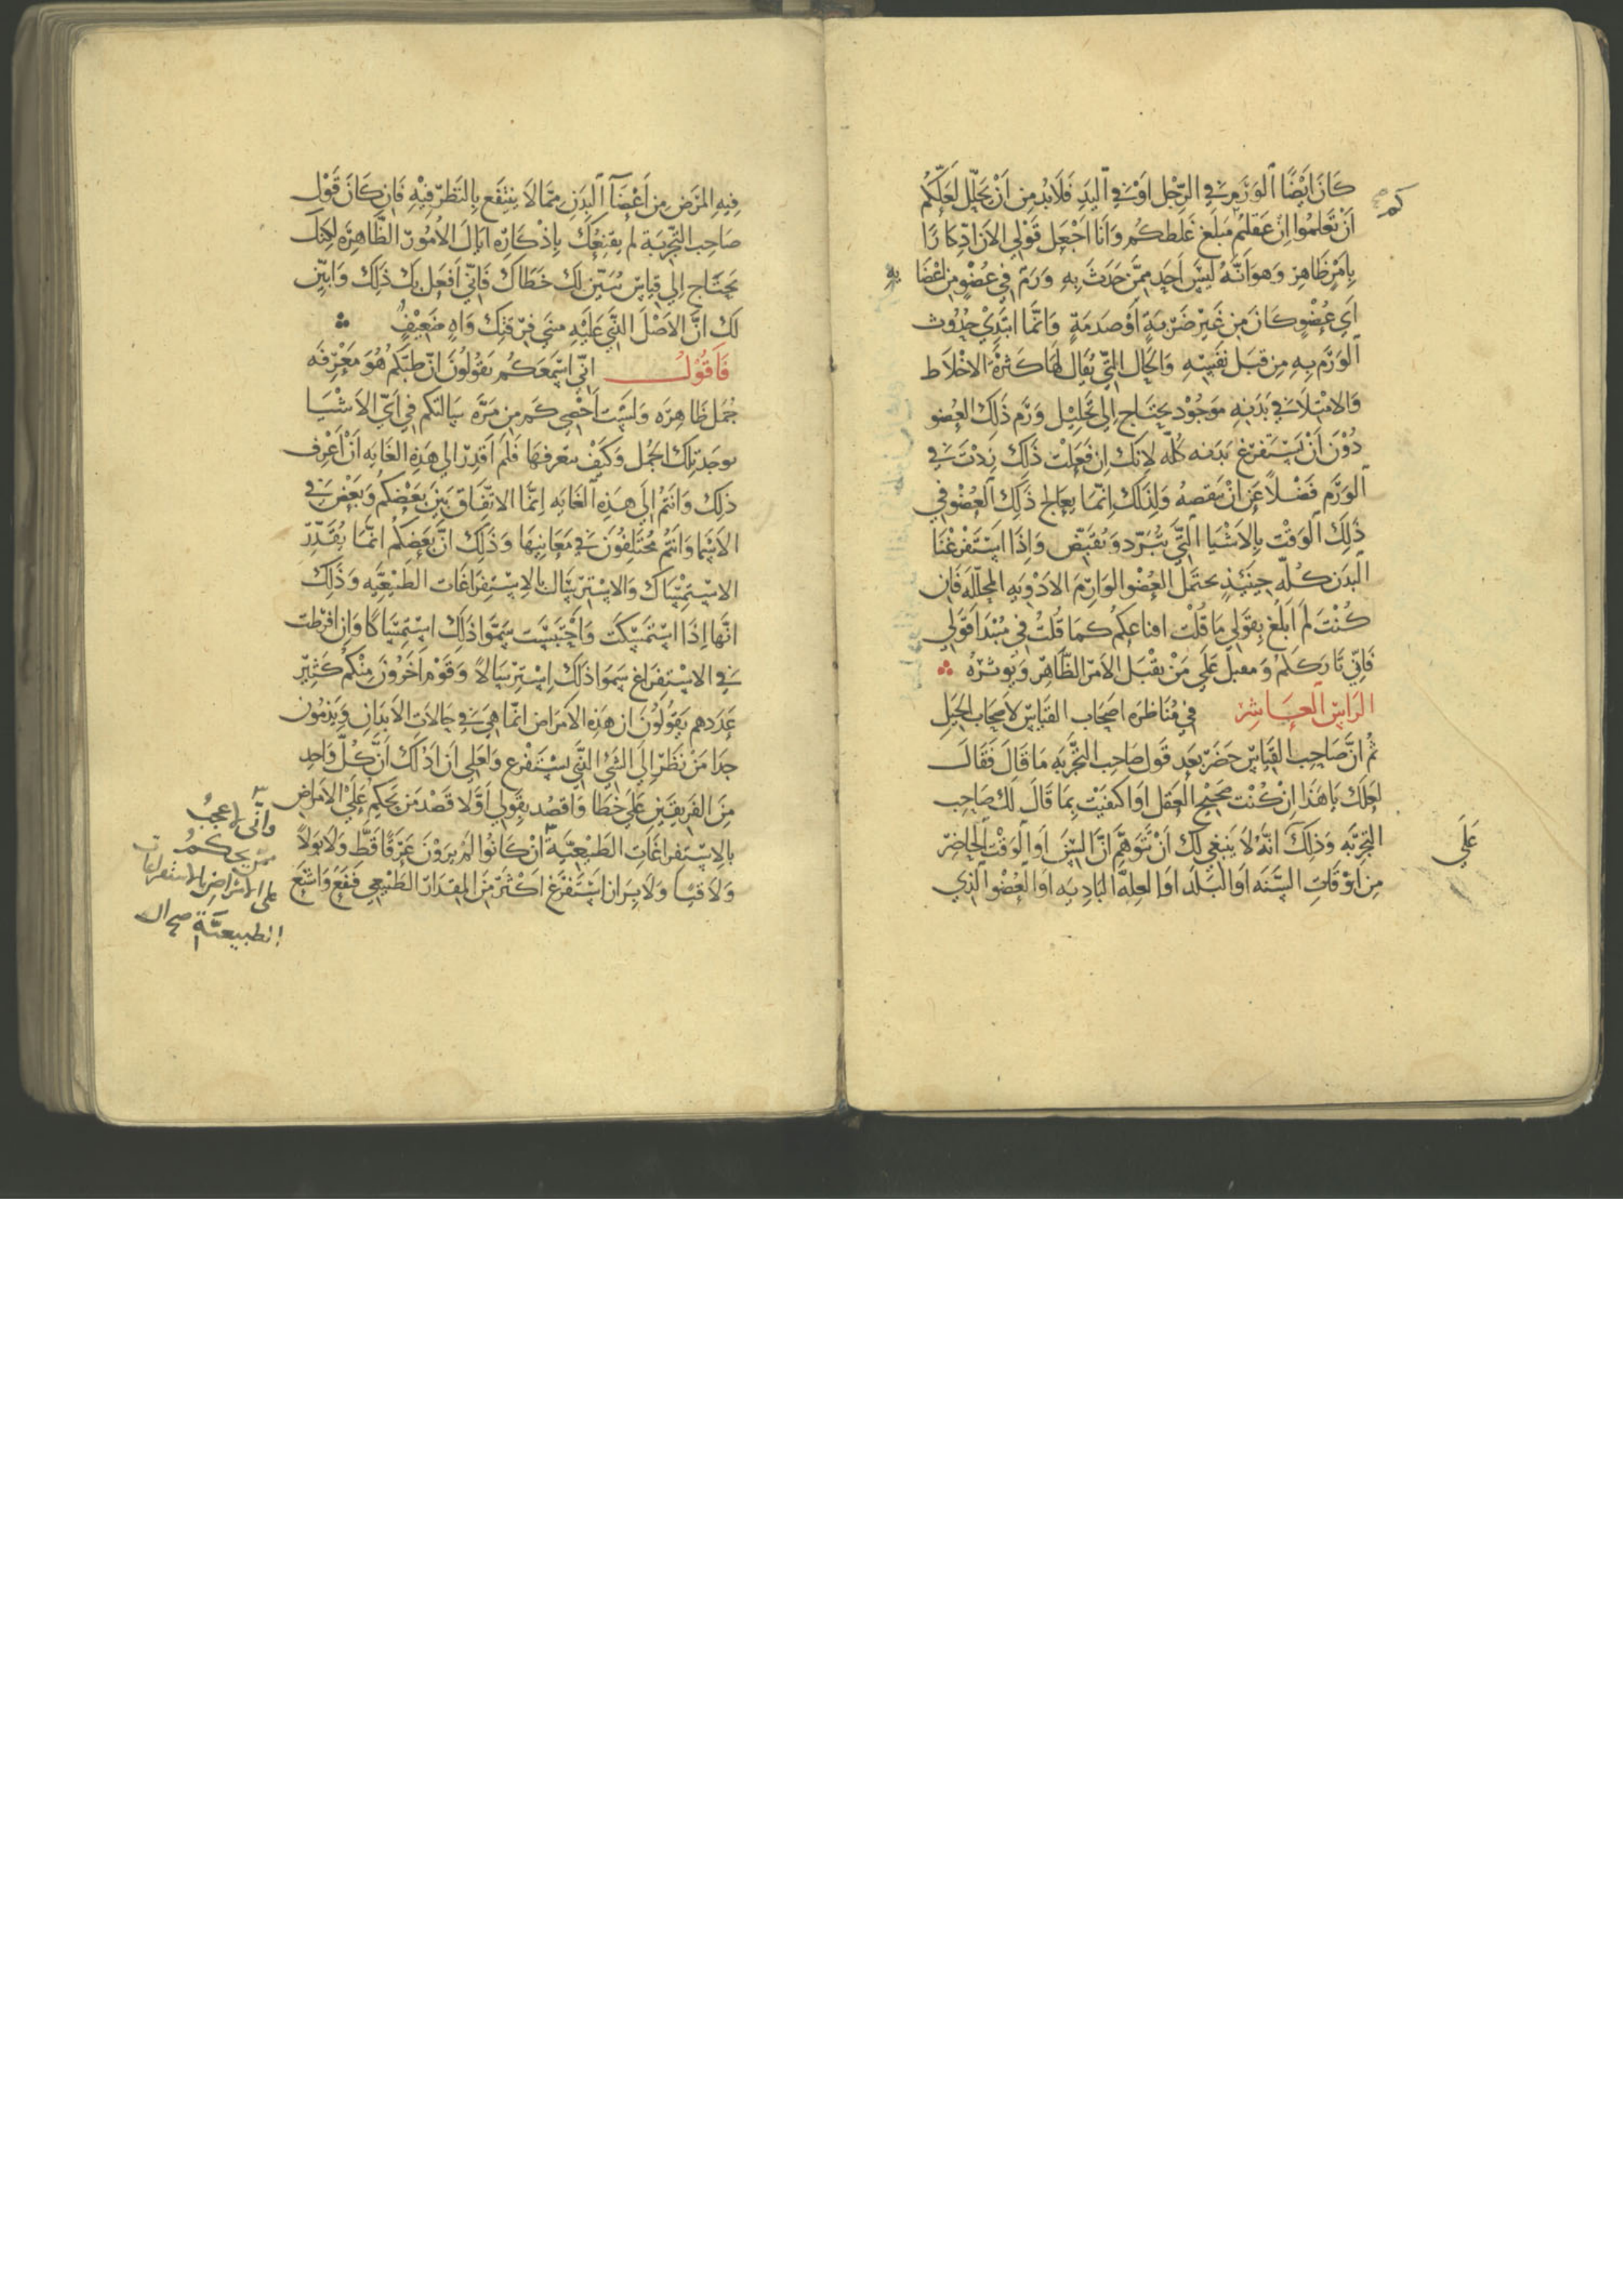 كَانَ اَيْضًا الوَرَمِ فِي الرِّجْل اَوْ فِي اليَدِ فَلَابُد مِن اَنْ يُحَلَّل لَعَلَّكُمْ
كم
اَنْ تَعْلَمُوا اِنْ عَقَلتُم مَبْلَغ غَلَطكُم وَاَنَا اَجْعَل قَوْلِي الاَن اذكارًا
بِاَمْرٍ ظَاهِرٍ وَهوَ اَنَّهُ لَيْسَ اَحَد مِمَّن حَدَثَ بِهِ وَرَم فِي عُضْوٍ مِن اعْضَا
يه
اَي عُضْوٍ كَانَ مِن غَيْرِ ضَرْبَةٍ اَوْ صَدمَةٍ وَاِنَّمَا ابْتَدِي حُدُوث
الوَرَم بِهِ مِن قِبَل نَفْسِهِ وَالحَال الَّتِي يُقَال لَهَا كَثْرَة الاخْلَاط
وَالامْتِلَا فِي بَدَنِهِ مَوجُوْد يَحتَاج اِلي تَحْلِيْل وَرَم ذَلِكَ العُضو
دُوْنَ اَنْ يَسْتَفْرِغ بَدَنه كُلّه لاِنَكَ اِن فَعَلْت ذَلِكَ زِدْتَ فِي
الوَرَم فَضْلاً عَن اَنْ يَنقصهُ وَلِذَلِكَ اِنّمَا يعَالج ذَلِكَ العُضْو فِي
ذَلِكَ الوَقْت بِالاَشْيَا الَّتِي تُبَرّد وَتُقَبّض وَاِذَا اسْتَفْرغْنَا
البَدَن كُلّه حِيْنَئِذٍ يحتَمل العُضْو الوَارِم الادْوِيَه المحلّلَه فَاِن
كُنْتَ لَم اَبْلُغ بِقَوْلِي مَا قُلْت اقناعكُم كَمَا قُلتُ فِي مُبْتَدَا قَوْلي
فَاِنّي تَارِككُم وَمقبل عَلَي مَنْ يقْبَل الاَمر الظَّاهِر وَيُوثرهُ
الرَاسِ العَاشِر في مُنَاظَرَه اصحَاب القيَاسِ لاَصحَاب الحيَل
ثُم اِنَّ صَاحِب القِيَاسِ حَضَرَ بَعد قَول صَاحِب التَّجْرِبَه مَا قَالَ فَقَالَ
لَكَ يَاهَذَا اِنْ كُنْت صَحِيْح العَقْل اوَ اكتفيْت بِمَا قَالَ لَك صَاحِب
التَجرِبَه وَذَلِكَ اَنَّهُ لاَ يَنبَغي لَك اَنْ تَتَوَهَّم اَنَّ السِّنّ اَو الوَقْت الحَاضِر
عَلَي
مِن اَوْقَاتِ السَّنَه اَو البَلَد اَو العِلَّه البَادِيَه اَو العُضْو الَّذِي
فِيهِ المَرَض مِن اَعْضَا البَدَنِ مِمَّا لاَ يَنْتَفَع بِالنَظَر فِيْهِ فَاِن كَانَ قَوْل
صَاحِب التَّجْربَة لم يقنعكَ بِاِذْكَارِه اِيَاكَ الاُمُوْر الظَّاهِرَه لَكِنَّك
تَحتَاج اِلَي قِيَاسٍ يُبَيِّن لَك خَطَاكَ فَاِنِّي اَفعَل بِكَ ذَلِكَ وَابَيّن
لَكَ اَنَّ الاصْلَ الَّذِي عَلَيْهِ مبني فِرْقتك وَاهٍ ضَعِيْفٌ
فَاَقُوْلُ اِنّي اَسْمَعَكُم تَقُولُونَ اِنّ طِبّكُم هُوَ مَعْرِفَه
جُمَل ظَاهِرَه وَلَسْت اَحْصِي كَم مِن مَرَّه سَالتكم فِي اَيّ الاَشْيَا
توجَد تِلكَ الجُمَل وَكَيْفَ نتعرفهَا فَلَم اَقدِر الي هَذِهِ الغَايَه اَنْ اَعْرف
ذَلِكَ وَانتُم اِلَي هَذِهِ الغَايَه اِنَّمَا الاتّفَاق بَيْنَ بَعْضِكُم وَبَعْض فِي
الاَسْمَا وَانتُم مُختَلِفُوْنَ في مَعَانِيْهَا وَذَلِكَ انّ بَعْضكُم اِنَّمَا يُقَدّر
الاسْتِمْسَاك وَالاسْتِرسَال بالاِسْتِفرَاغَات الطبيعيَّه وَذَلِكَ
انَّهَا اِذَا اسْتَمسَكَت وَاحْتَبَسَت سَمَّوا ذَلِكَ اسْتِمْسَاكًا وَاِن افرَطت
فِي الاسْتِفرَاغ سَمَوا ذَلكَ اِسْتِرْسَالاً وَقَوْم اَخَرُونَ مِنْكُم كَثِيْر
عَدَدهم يَقُوْلُوْنَ ان هَذِهِ الاَمْرَاض انَّمَا هِيَ فِي حَالاَت الاَبدَان وَيذمّون
جِدًا مَن نَظَر اِلَي الشَي الَّذِي يستَفْرغ وَلَعَلِي اَن اَدُلّكَ اَنَّ كُلّ وَاحِدٍ
مِنَ الفَرِيقَيْنِ عَلَي خَطَا وَاَقصُد بِقَولِي اَوَّلاً قَصْد مَن يَحكم عَلَي الاَمرَاض
بِالاسْتِفرَاغَاتِ الطَبيْعيَّة اِنْ كَانُوا لم يرَوْنَ عَرَقًا قَطّ وَلاَ بَولاً
وَلاَ قيًا وَلاَ بِرَاز اسْتَفرَغ اَكثَر مِنَ المقدَار الطَبْيعي فنَفَع وَاشبَع
واَنّي لاعجبُ
ممّن يحكمُ
على الامراضِ بالاستفراغات
الطبيعيَّة صح